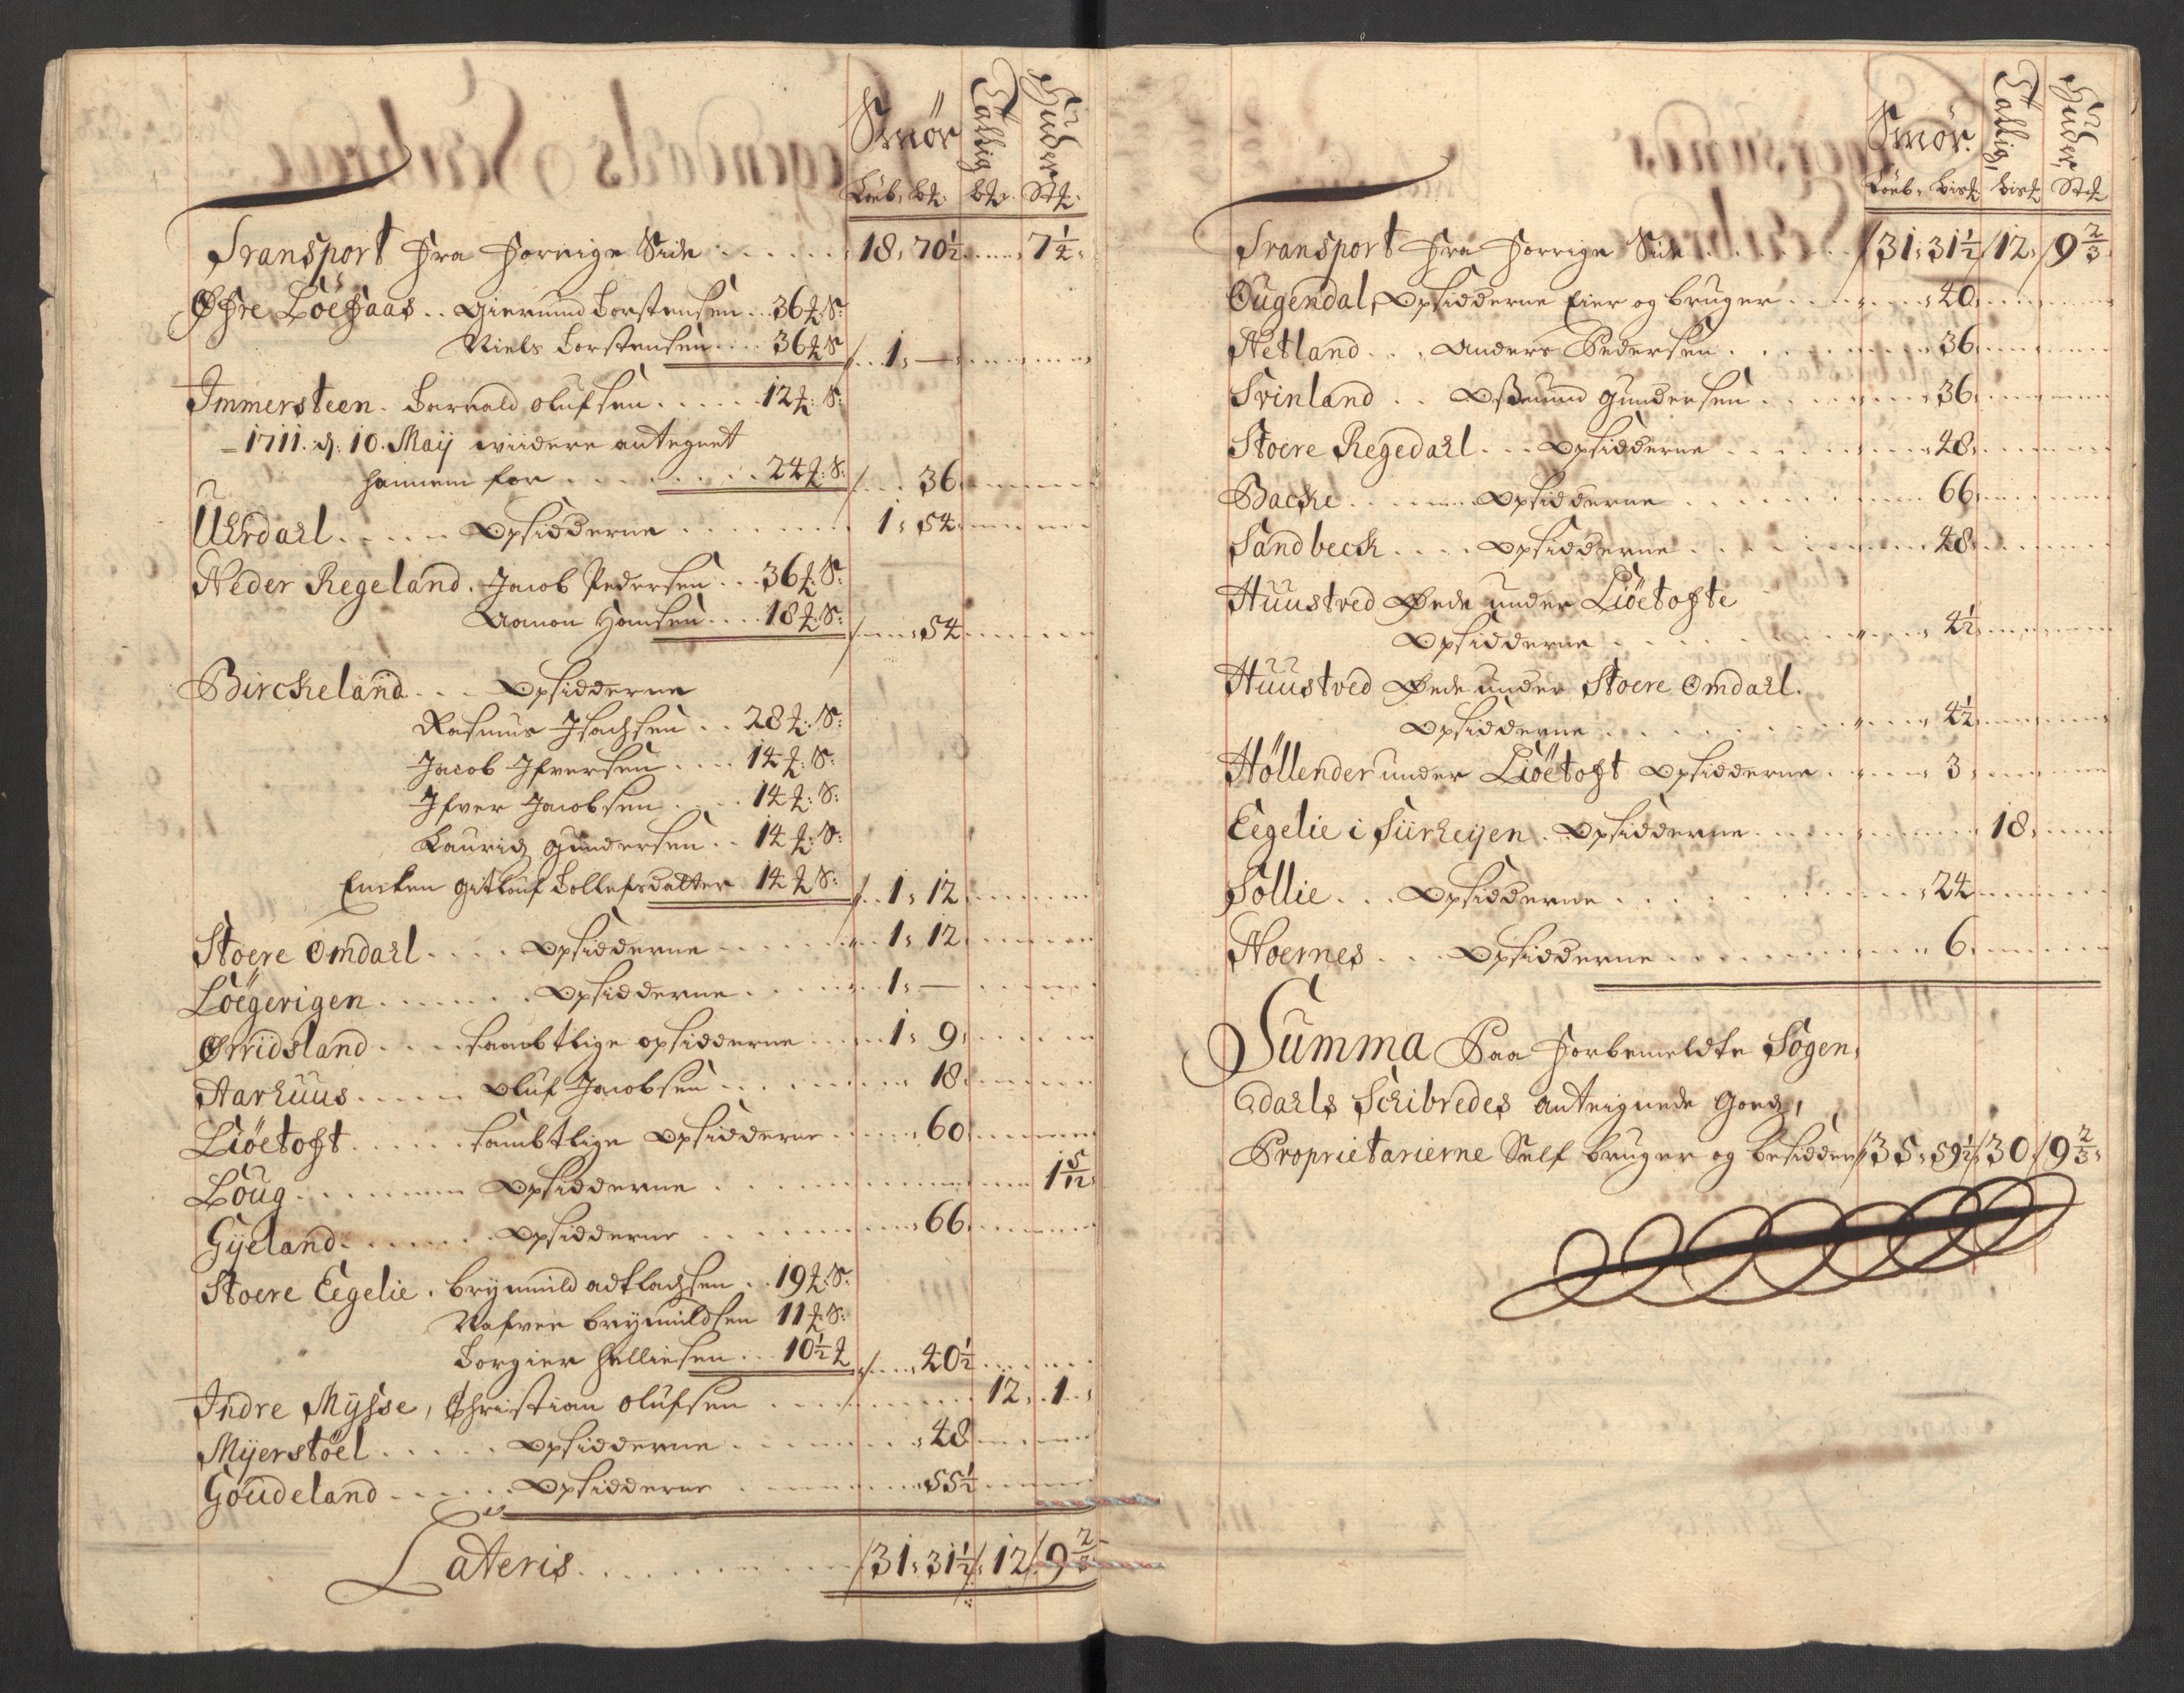 Smør Tallig Huder
Løeb, B℔: B℔. St℔:
Transport Fra Forrige Side . . . . . . 18, 70½ . . . . 7¼,
Øfre Löefaas . . Giermund Torstensen . . 36 ℔: S:
Niels Torstensen . . . 36 ℔ S / . . 1, —
Immersteen . Tarrald Olufsen . . . . . 12 ℔: S:
– 1711. d: 10. Maij widere antegnet
hannem for . . . . . . . . 24 ℔: S: / . . . 36
Uhrdahl . . . . . Opsidderne . . . . . . . 1, 54
Neder Regeland . Jacob Pedersen . . 36 ℔: S:
Aamon Hansen . . . 18 ℔: S: / . . . 54
Birckeland . . . Opsidderne
Rasmus Isachsen . . 28 ℔: S:
Jacob Ifversen . . . . 14 ℔: S:
Ifver Jacobsen . . . . 14 ℔: S:
Lauridz Gundersen . . 14 ℔: S:
Encken Gitlouf Tollefsdatter 14 ℔ S: / . . 1, 12
Stoere Omdahl . . . . Opsidderne . . . . . . 1, 12
Löegerigen . . . . . . . Opsidderne . . . . . . 1, —
Ørridsland . . . . Sambtlige opsidderne . . . . 1, 9,
Aarhuus . . . . . Oluf Jacobsen . . . . . . 18
Liöetoft . . . . . . Sambtlige Opsidderne . . . . . 60
Loug . . . . . . Opsidderne . . . . . . . . 1 5/12
Gÿeland . . . . . . . Opsidderne . . . . . . . 66
Stoere Eegelie . Brynnild Adtlachsen . . 19 ℔: S:
Rafven Brynnildsen 11 ℔: S:
Torgier Helliesen . . . 10½ ℔ / . . . 40½
Indre Mysse, Christian Olufsen . . . . . . . . 12, . 1 . .
Mÿerstöel . . . . . . Opsidderne . . . . . . . . 48
Goudeland . . . . . . Opsidderne . . . . . . . . 55½
Lateris . . . . . . . . . . /31, 31½/, 12/ 9⅔
Smør. Tallig, Huder,
Løeb, Bis℔: Bis℔ St℔
Transport Fra Forrige Side . . . . . . . /31, 31½/12, /9⅔
Ougendal, Opsidderne Eier og bruger . . . . . . 40,
Netland . . . Anders Pedersen . . . . . . . . 36,
Svinland . . Osmund Gundersen . . . . . . . 36
Stoere Regedahl . . . Opsidderne . . . . . . . 48,
Backe . . . . . . . Opsidderne . . . . . . . . . 66
Sandbeck . . . . Opsidderne . . . . . . . . 48
Huustved Øede under Liöetofte
Opsidderne . . . . . . . . . . 4½
Huustved Øede under Stoere Omdahl.
Opsidderne . . . . . . . . . . 4½
Höllender under Liöetoft Opsidderne . . . . . 3
Eegelie i Siirheijen . Opsidderne . . . . . . . . . 18,
Sollie . . . Opsidderne . . . . . . . . . . . 24
Noernes . . . Opsidderne . . . . . . . . . . 6
Summa Paa Forbemeldte Sogen,
dahls Schibredes anteignede Goedz,
Proprietarierne Self bruger og besidder /35, 59½/30/9⅔,